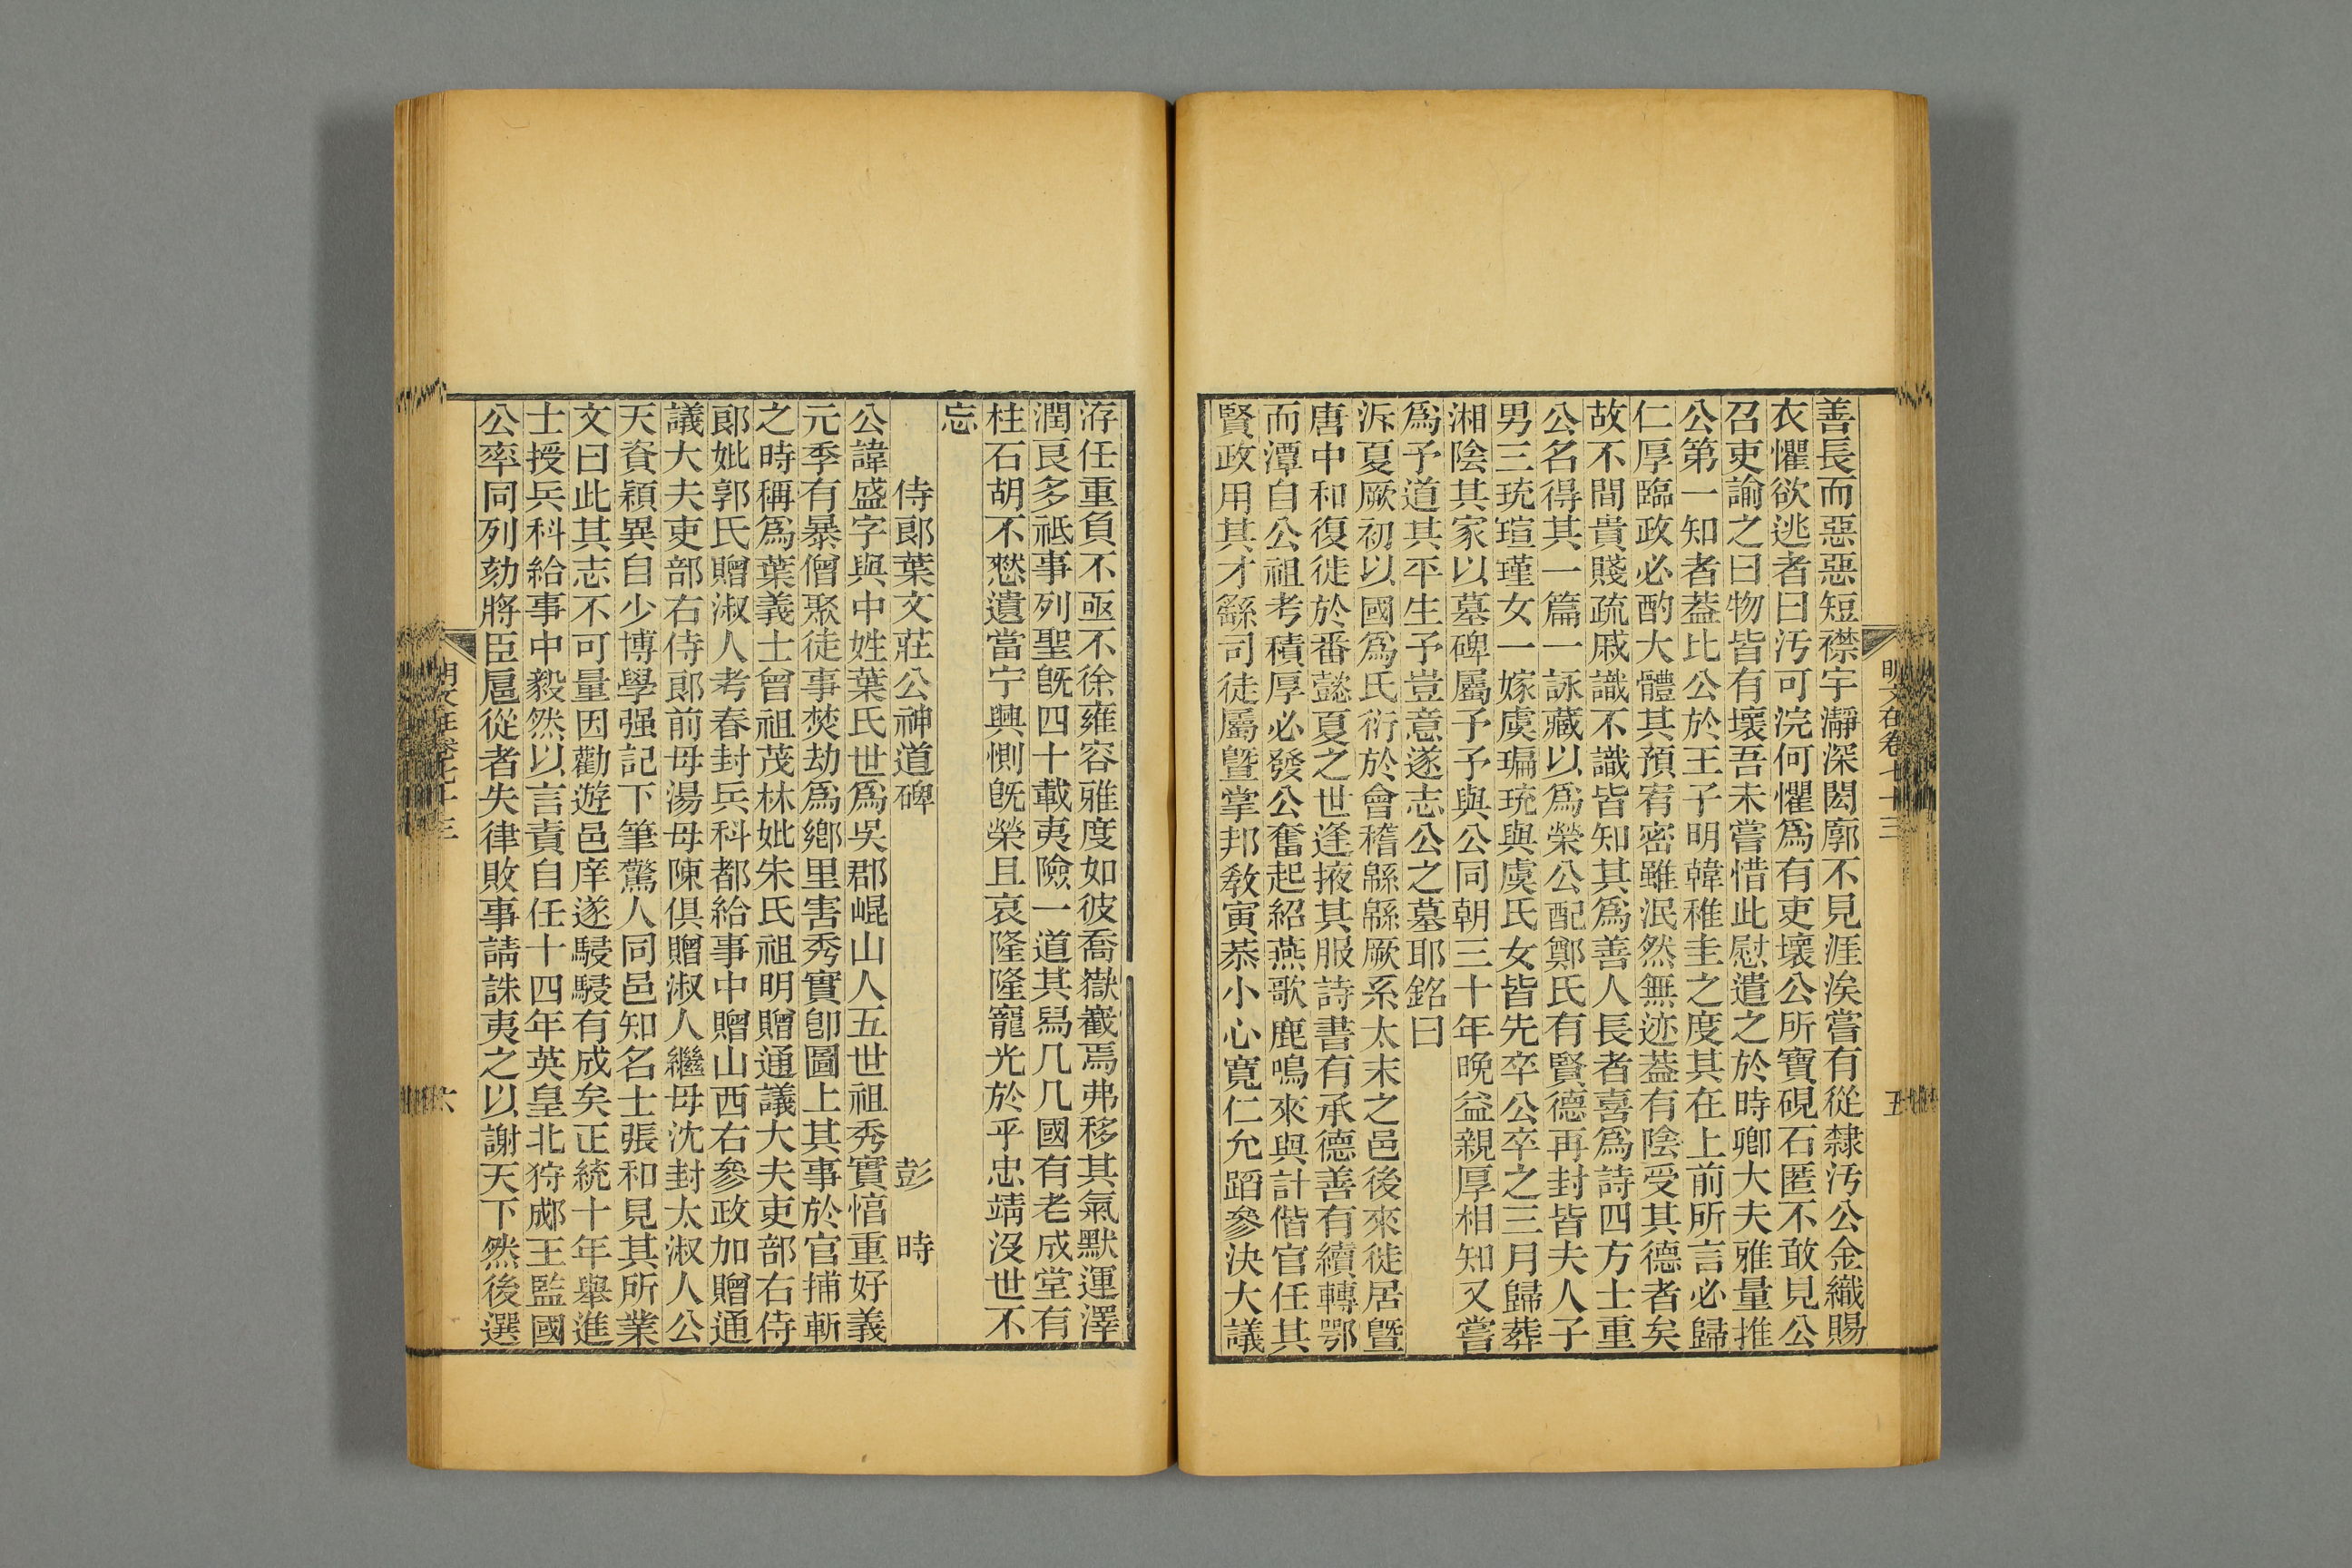 善長而惡惡短襟宇瀞深閎廓不見涯涘嘗有從隸汚公金織賜
衣懼欲逃者曰汚可浣何懼爲有吏壞公所寶硯石匿不敢見公
召吏諭之曰物皆有壞吾未嘗惜此慰遣之於時卿大夫雅量推
公第一知者葢比公於王子明韓稚圭之度其在上前所言必歸
仁厚臨政必酌大體其預宥密雖泯然無迹葢有陰受其德者矣
故不間貴賤疏戚識不識皆知其爲善人長者喜爲詩四方士重
公名得其一篇一詠藏以爲榮公配鄭氏有賢德再封皆夫人子
男三琉瑄瑾女一嫁虞㻞琉與虞氏女皆先卒公卒之三月歸葬
湘陰其家以墓碑屬予予與公同朝三十年晚益親厚相知又嘗
爲予道其平生予豈意遂志公之墓耶銘曰
泝夏厥初以國爲氏衍於會稽緜緜厥系太末之邑後來徙居曁
唐中和復徙於番懿夏之世逢掖其服詩書有承德善有續轉鄂
而潭自公祖考積厚必發公奮起紹燕歌鹿鳴來與計偕官任其
賢政用其才繇司徒屬曁掌邦敎寅恭小心寬仁允蹈參決大議
明文在卷七十三
五
洊任重負不亟不徐雍容雅度如彼喬嶽巀焉弗移其氣默運澤
潤良多祗事列聖旣四十載夷險一道其舄几几國有老成堂有
柱石胡不憗遺當宁興惻旣榮且哀隆隆寵光於乎忠靖沒世不
忘
侍郞葉文莊公神道碑 彭 時
公諱盛字與中姓葉氏世爲吳郡崐山人五世祖秀實愊重好義
元季有暴僧聚徒事焚劫爲鄕里害秀實卽圖上其事於官捕斬
之時稱爲葉義士曾祖茂林妣朱氏祖明贈通議大夫吏部右侍
郞妣郭氏贈淑人考春封兵科都給事中贈山西右參政加贈通
議大夫吏部右侍郞前母湯母陳俱贈淑人繼母沈封太淑人公
天資穎異自少博學强記下筆驚人同邑知名士張和見其所業
文曰此其志不可量因勸遊邑庠遂駸駸有成矣正統十年舉進
士授兵科給事中毅然以言責自任十四年英皇北狩郕王監國
公率同列劾將臣扈從者失律敗事請誅夷之以謝天下然後選
明文在卷七十三
六